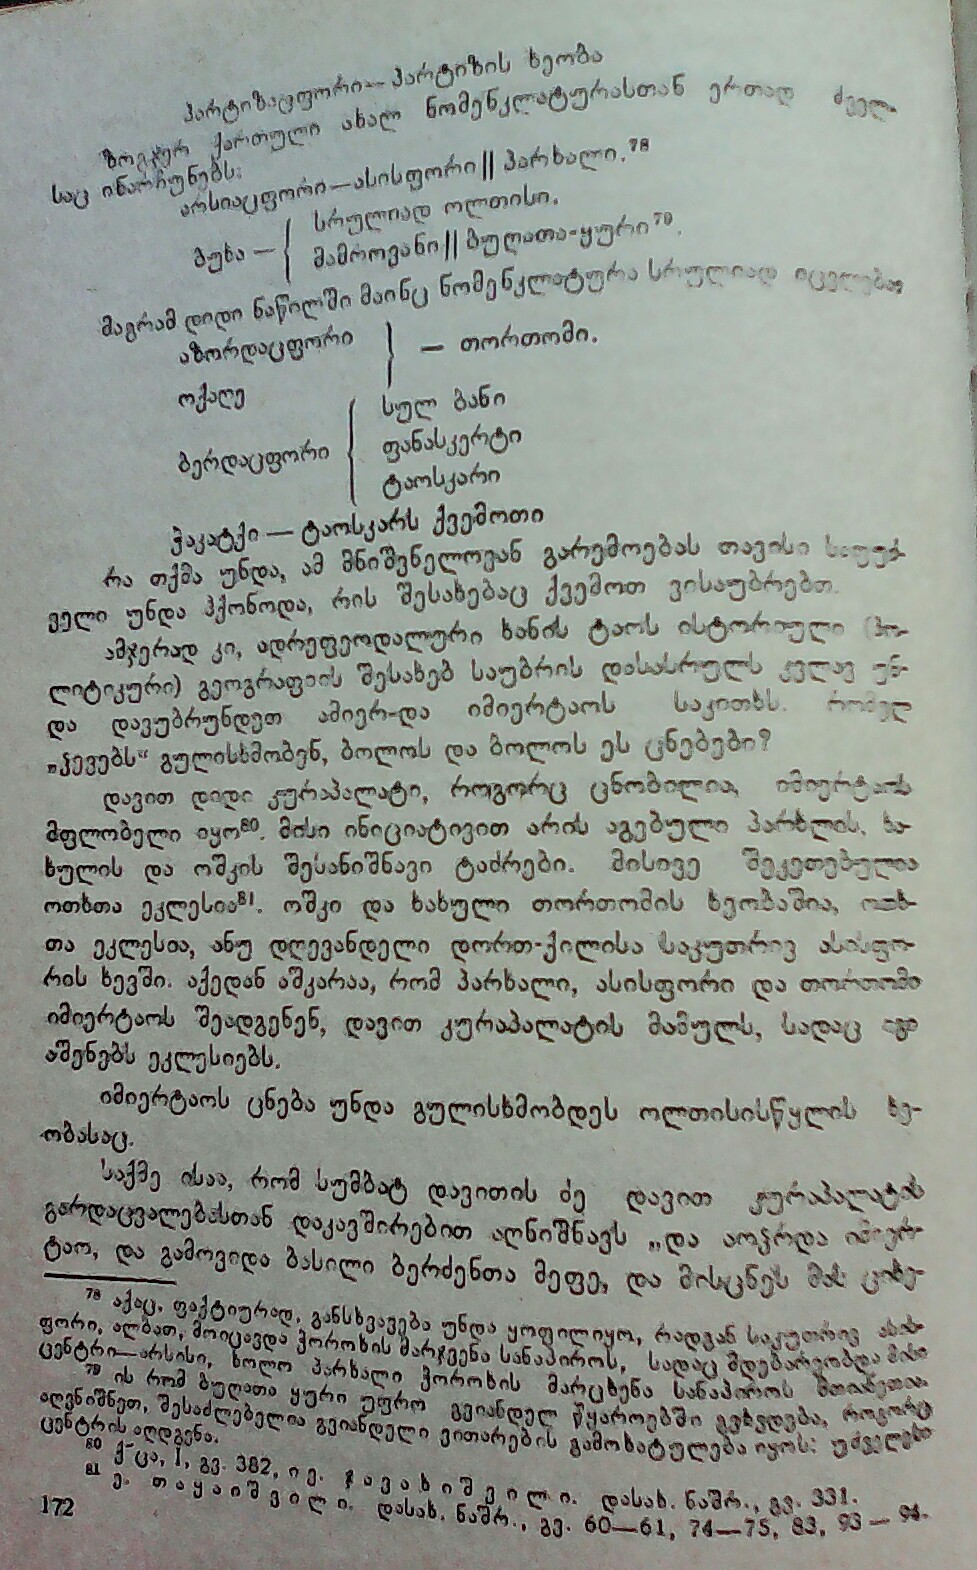 პარტიზაცფორი — პარტიზის ხეობა
ზოგჯერ ქართული ახალ ნომენკლატურასთან ერთად ძველ-
საც ინარჩუნებს:
არსიაცფორი — ასისფორი || პარხალი.78
ბუხა — { სრულიად ოლთისი.
მამროვანი || ბუღათა-ყური79.
მაგრამ დიდი ნაწილში მაინც ნომენკლატურა სრულიად იცვლება,
აზორდაცფორი
ოქაღე } — თორთომი.
ბერდაცფორი { სულ ბანი
ფანასკერტი
ტაოსკარი
ჭაკატქი — ტაოსკარს ქვემოთი
რა თქმა უნდა, ამ მნიშვნელოვან გარემოებას თავისი საფუძ-
ველი უნდა ჰქონოდა, რის შესახებაც ქვემოთ ვისაუბრებთ.
ამჯერად კი, ადრეფეოდალური ხანის ტაოს ისტორიული (პო-
ლიტიკური) გეოგრაფიის შესახებ საუბრის დასასრულს კვლავ უნ-
და დავუბრუნდეთ ამიერ-და იმიერტაოს საკითხს. რომელ
„ჴევებს“ გულისხმობენ, ბოლოს და ბოლოს ეს ცნებები?
დავით დიდი კურაპალატი, როგორც ცნობილია, იმიერტაოს
მფლობელი იყო80. მისი ინიციატივით არის აგებული პარხლის, ხა-
ხულის და ოშკის შესანიშნავი ტაძრები. მისივე შეკეთებულია
ოთხთა ეკლესია81. ოშკი და ხახული თორთომის ხეობაშია, ოთხ-
თა ეკლესია, ანუ დღევანდელი დორთ-ქილისა საკუთრივ ასისფო-
რის ხევში. აქედან აშკარაა, რომ პარხალი, ასისფორი და თორთომი
იმიერტაოს შეადგენენ, დავით კურაპალატის მამულს, სადაც იგი
აშენებს ეკლესიებს.
იმიერტაოს ცნება უნდა გულისხმობდეს ოლთისისწყლის ხე-
ობასაც.
საქმე ისაა, რომ სუმბატ დავითის ძე დავით კურაპალატის
გარდაცვალებასთან დაკავშირებით აღნიშნავს „და აოჴრდა იმიერ-
ტაო, და გამოვიდა ბასილი ბერძენთა მეფე, და მისცნეს მას ციხე-
78 აქაც, ფაქტიურად, განსხვავება უნდა ყოფილიყო, რადგან საკუთრივ ასის-
ფორი, ალბათ, მოიცავდა ჭოროხის მარჯვენა სანაპიროს, სადაც მდებარეობდა მისი
ცენტრი—არსისი, ხოლო პარხალი ჭოროხის მარცხენა სანაპიროს
79 ის რომ ბუღათა ყური უფრო გვიანდელ წყაროებში გვხვდება, როგორც
აღვნიშნეთ, შესაძლებელია გვიანდელი ვითარების გამოხატულება იყოს: უძველესი
ცენტრის აღდგენა.
80 ქ-ცა, I, გვ. 382, ივ. ჯავახიშვილი. დასახ. ნაშრ., გვ. 331.
81 ე. თაყაიშვილი. დასახ. ნაშრ., გვ. 60—61, 74—75, 83, 93 — 94.
172